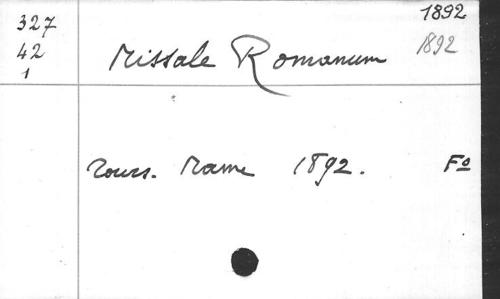 327
42
1
Missale Romanum
1892
1892
Tours. Mame 1892. Fo